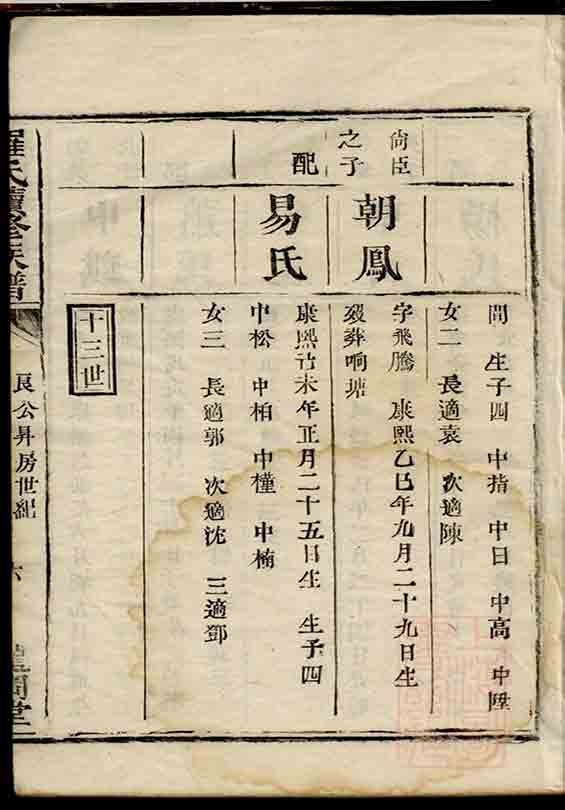 間 生子四 中指 中日 中高 中陞
女二 長適袁 次適陳
尙臣
之子
朝鳳
字飛騰 康熙乙巳年九月二十九日生
歿葬响塘
配
易氏
康熙丁未年正月二十五日生 生子四
中松 中柏 中槿 中楠
女三 長適郭 次適沈 三適鄧
十三世
羅氏續修族譜
良公昇房世紀
六